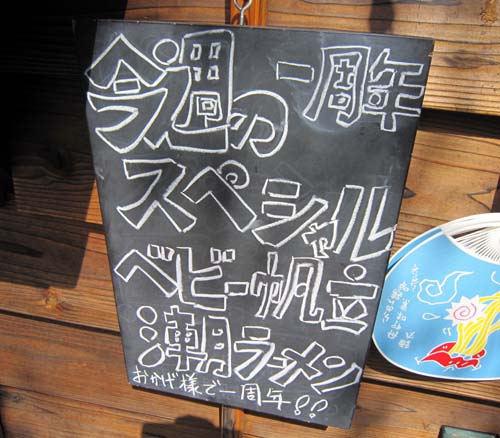 今週の
一周年
スペシャル
ベビー帆立
潮ラーメン
おかげ様で一周年!!